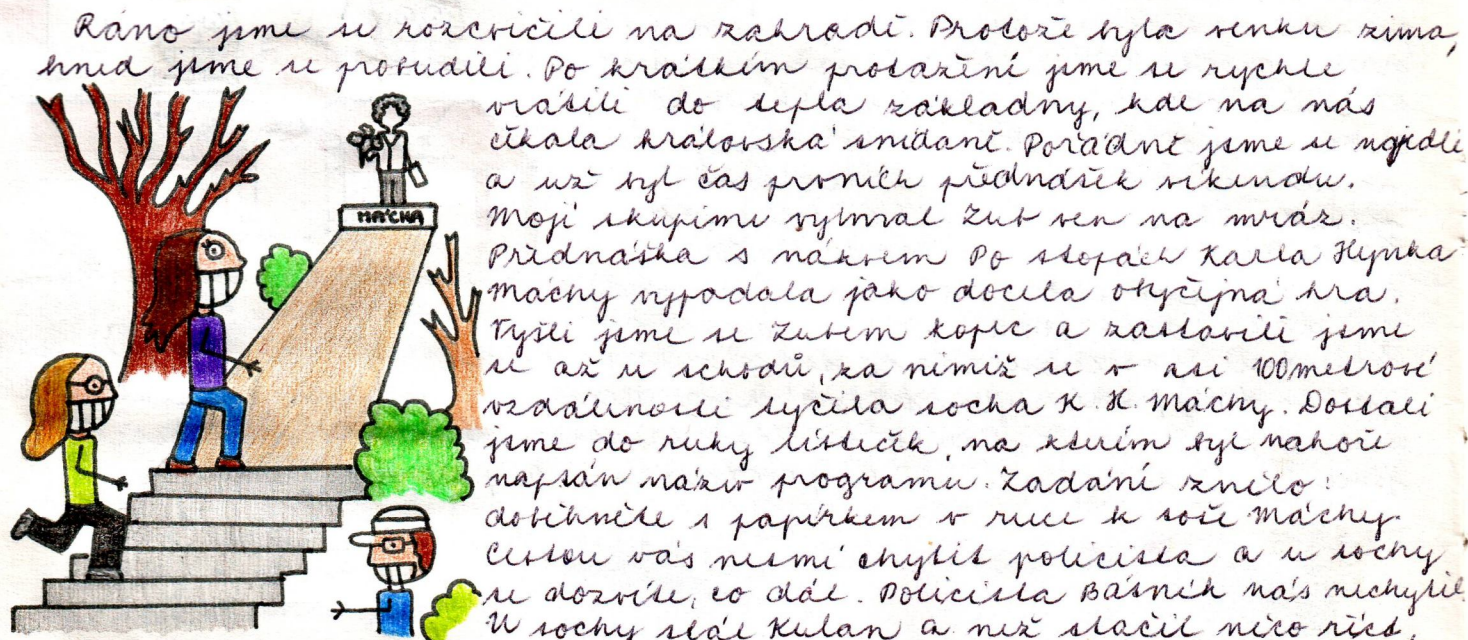 Ráno jsme se rozcvičili na zahradě. Protože byla venku zima,
hned jsme se probudili. Po krátkém protažení jsme se rychle
vrátili do tepla základny, kde na nás
čekala královská snídaně. Pořádně jsme se najedli
a už byl čas prvních přednášek víkendu.
Moji skupinu vyhnal Zub ven na mráz.
Přednáška s názvem Po stopách Karla Hynka
Máchy vypadala jako docela obyčejná hra.
Vyšli jsme se Zubem kopec a zastavili jsme
se až u schodů, za nimiž se v asi 100metrové
vzdálenosti tyčila socha K. H. Máchy. Dostali
jsme do ruky lísteček, na kterém byl nahoře
napsán název programu. Zadání znělo:
doběhněte s papírkem v ruce k soše Máchy.
Cestou vás nesmí chytit policista a u sochy
se dozvíte, co dál. Policista Básník nás nechytil.
U sochy stál Kulan a než stačil něco říct,
MÁCHA